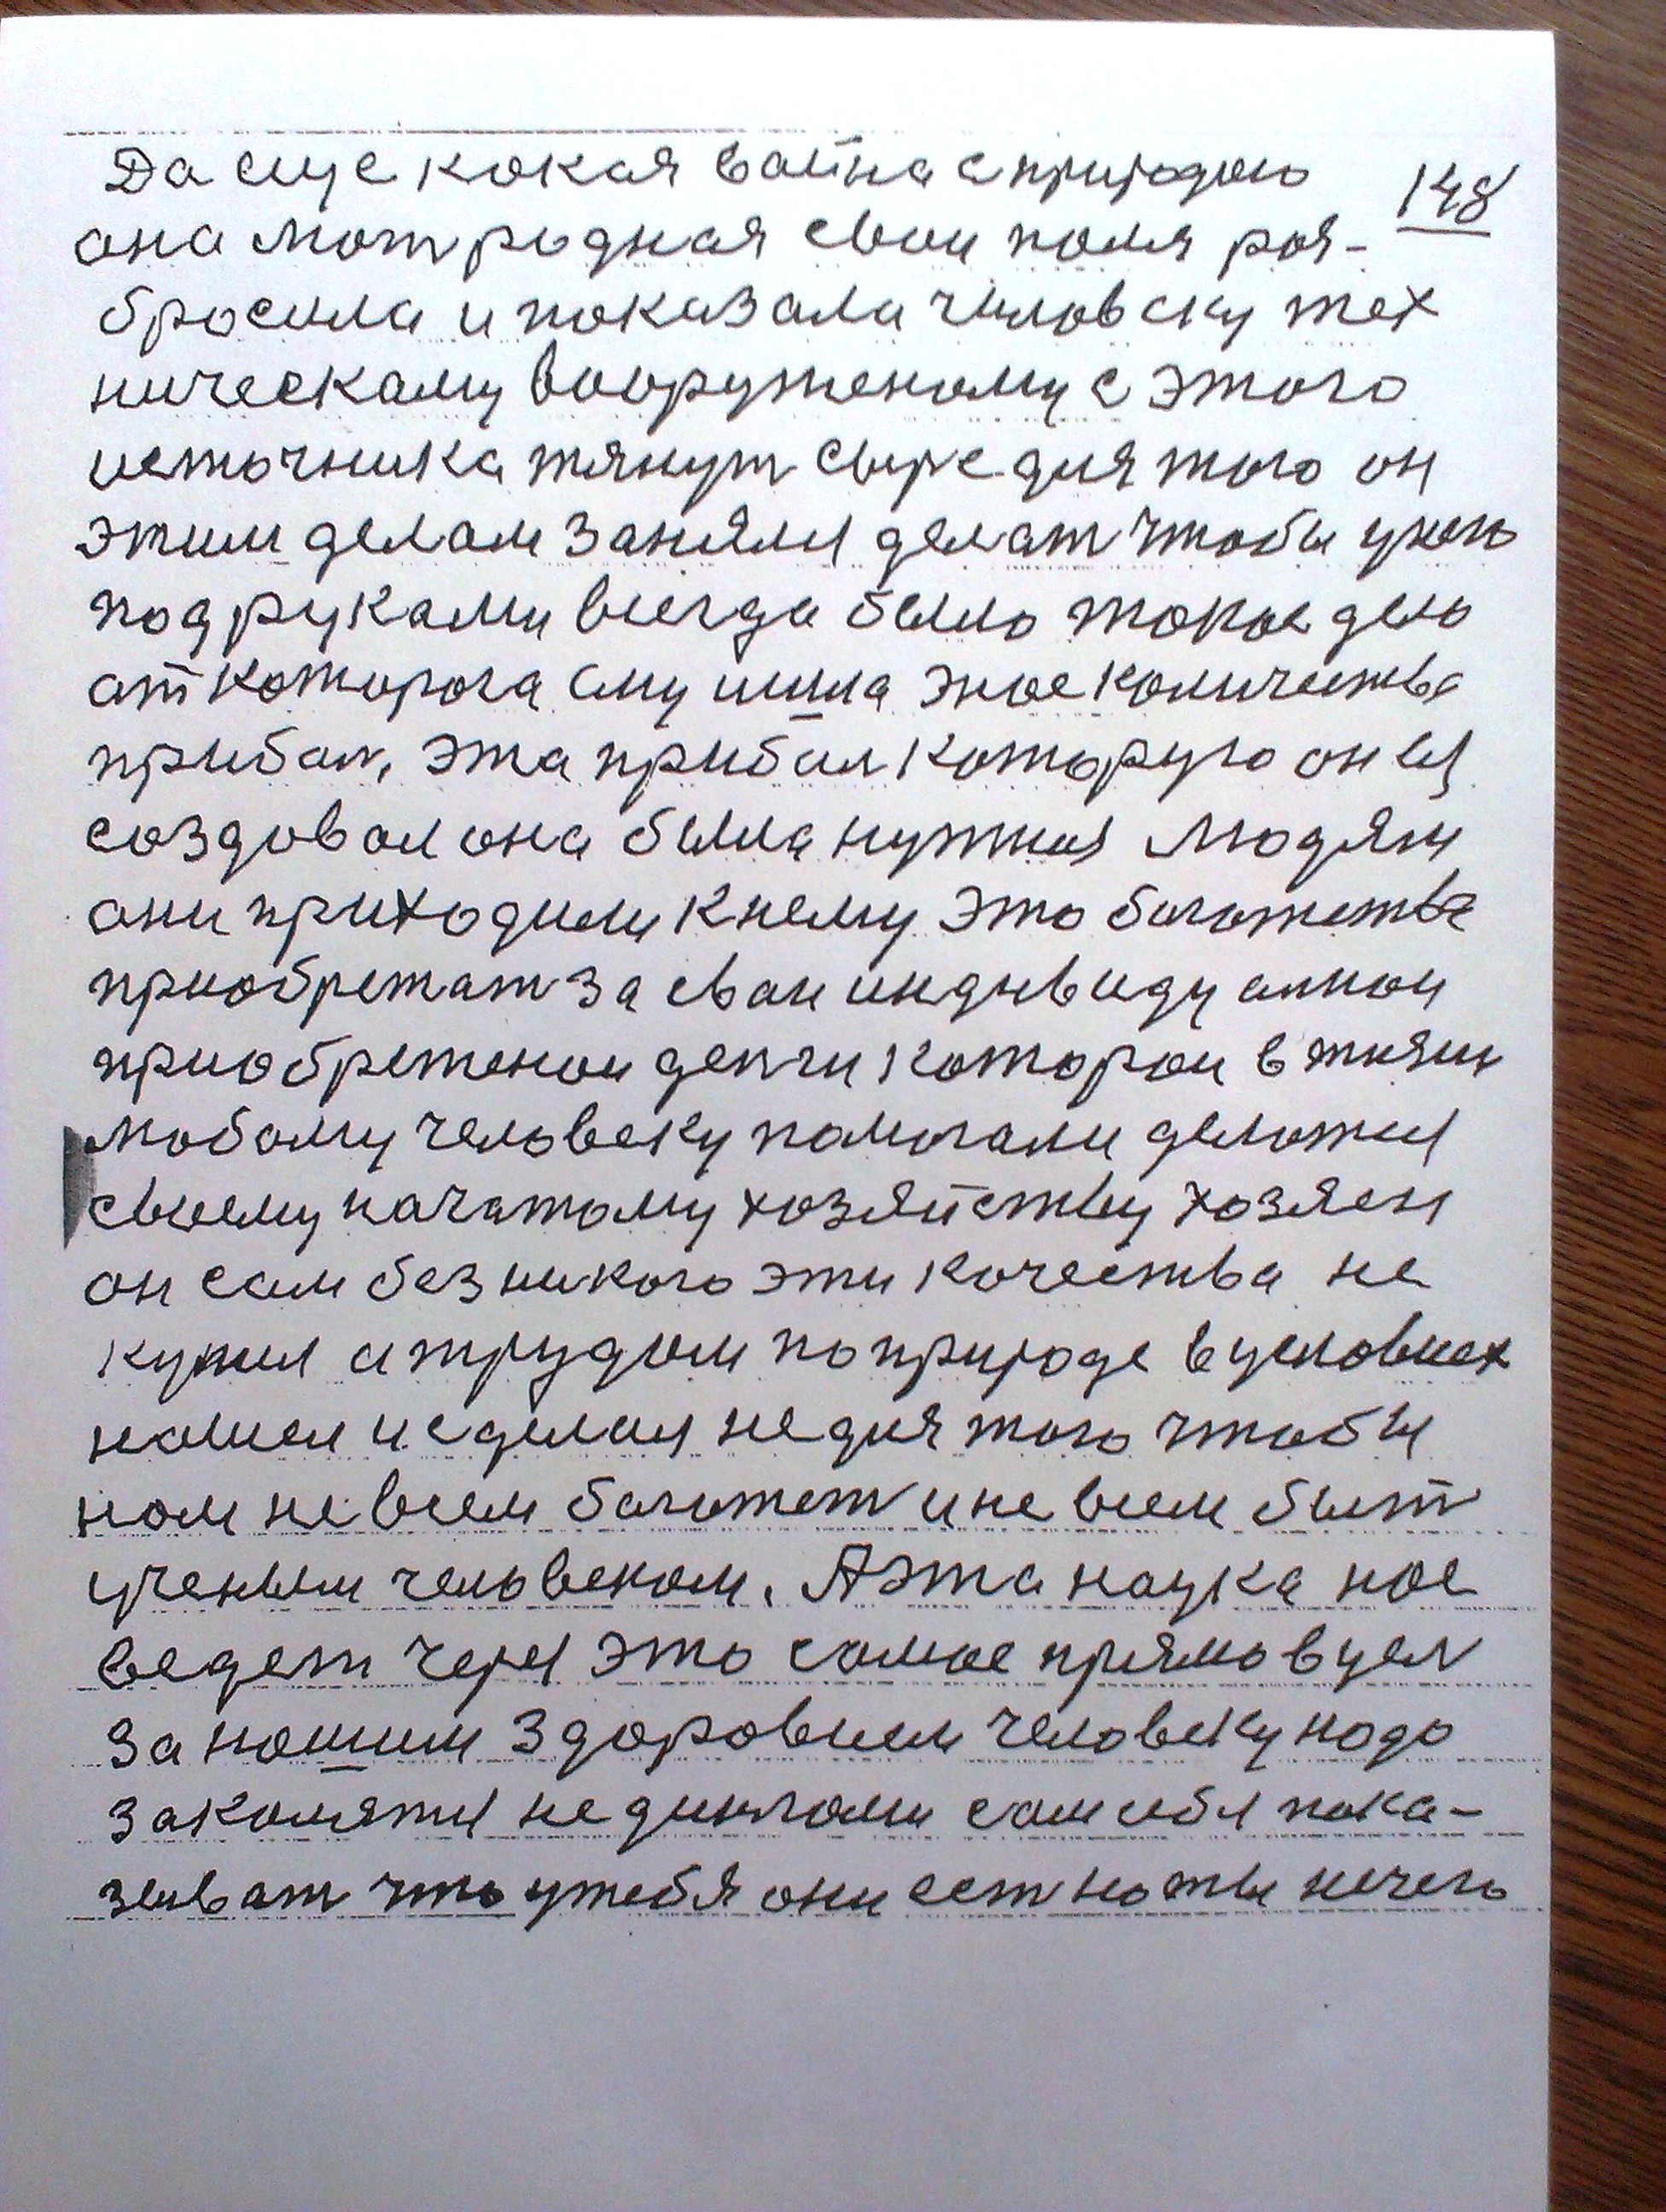 Да еще кокая война с природою
148
она мот родная свои поля роз-
бросила и показала чиловеку тех
ническаму вооруженому с этого
источника тянут сыре для того он
этим делам занялся делат чтобы у него
под руками всегда было токое дело
от которога ему шла эное количества
прибал, эта прибал которую он ей
создовал она была нужная людям
они приходили к нему это богатства
приобретат за сваи индивидуалнои
приобретенои денги которои в жизни
любому человеку помогали
своему начатому хозяйству хозяен
он сам без никого эти качества не
купил а трудом по природе в условиех
нашел и сделал не для того чтобы
ном не всем богатет и не всем быт
ученым человеком. А эта наука нас
ведет через это самое прямо в цел
за нашим здоровием человеку надо
заколятся не дингами сам себя пока-
зыват что у тебя они ест но ты нечего